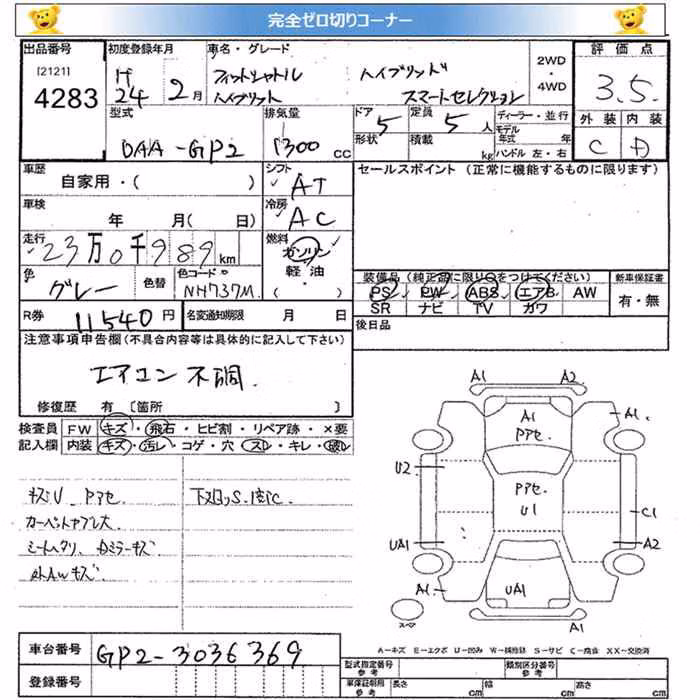 完全ゼロ切りコーナー
出品番号 初度登録年月 車名・グレード 2WD ・ 4WD 評価点
[2121] 4283 H24 2月 フィットシャトル ハイブリッド
ハイブリット スマートセレクション 3.5
型式 排気量 ドア 5 定員 5人 ディーラー・並行 外装 内装
DAA-GP2 1300cc 形状 積載 kg モデル年式 年 ハンドル 左・右 C D
車歴 シフト AT セールスポイント (正常に機能するものに限ります)
自家用・( )
車検 冷房 AC
年 月( 日)
走行 燃料
23万0千989km ガソリン
軽油
・
( )
色 色替 色コードNo
グレー NH737M
装備品(純正品に限り○をつけてください) 新車保証書
PS PW ABS エアB AW 有・無
SR ナビ TV カワ
R券 11540円 名変通知期限 月 日 後日品
注意事項申告欄(不具合内容等は具体的に記入して下さい)
エアコン不調.
修復歴 有 〔箇所 〕
検査員 FW キズ・飛石・ヒビ割・リペア跡・×要
記入欄 内装 キズ・汚レ・コゲ・穴・スレ・キレ・破レ
キズU Pアセ 下回りS.
カーペット
シートヘタリ、Dミラーキズ
AWキズ
A1 A2
A1 Pアセ A1
U2 Pアセ. U1 C1
UA1 A2
A1 UA1
スペア A1
A-キズ E-エクボ U-凹ミ W-補修跡 S-サビ C-腐食 XX-交換済
車台番号 GP2-3036369
登録番号
型式指定番号 類別区分番号
参考 車庫証明用 長さ cm 幅 cm 高さ cm